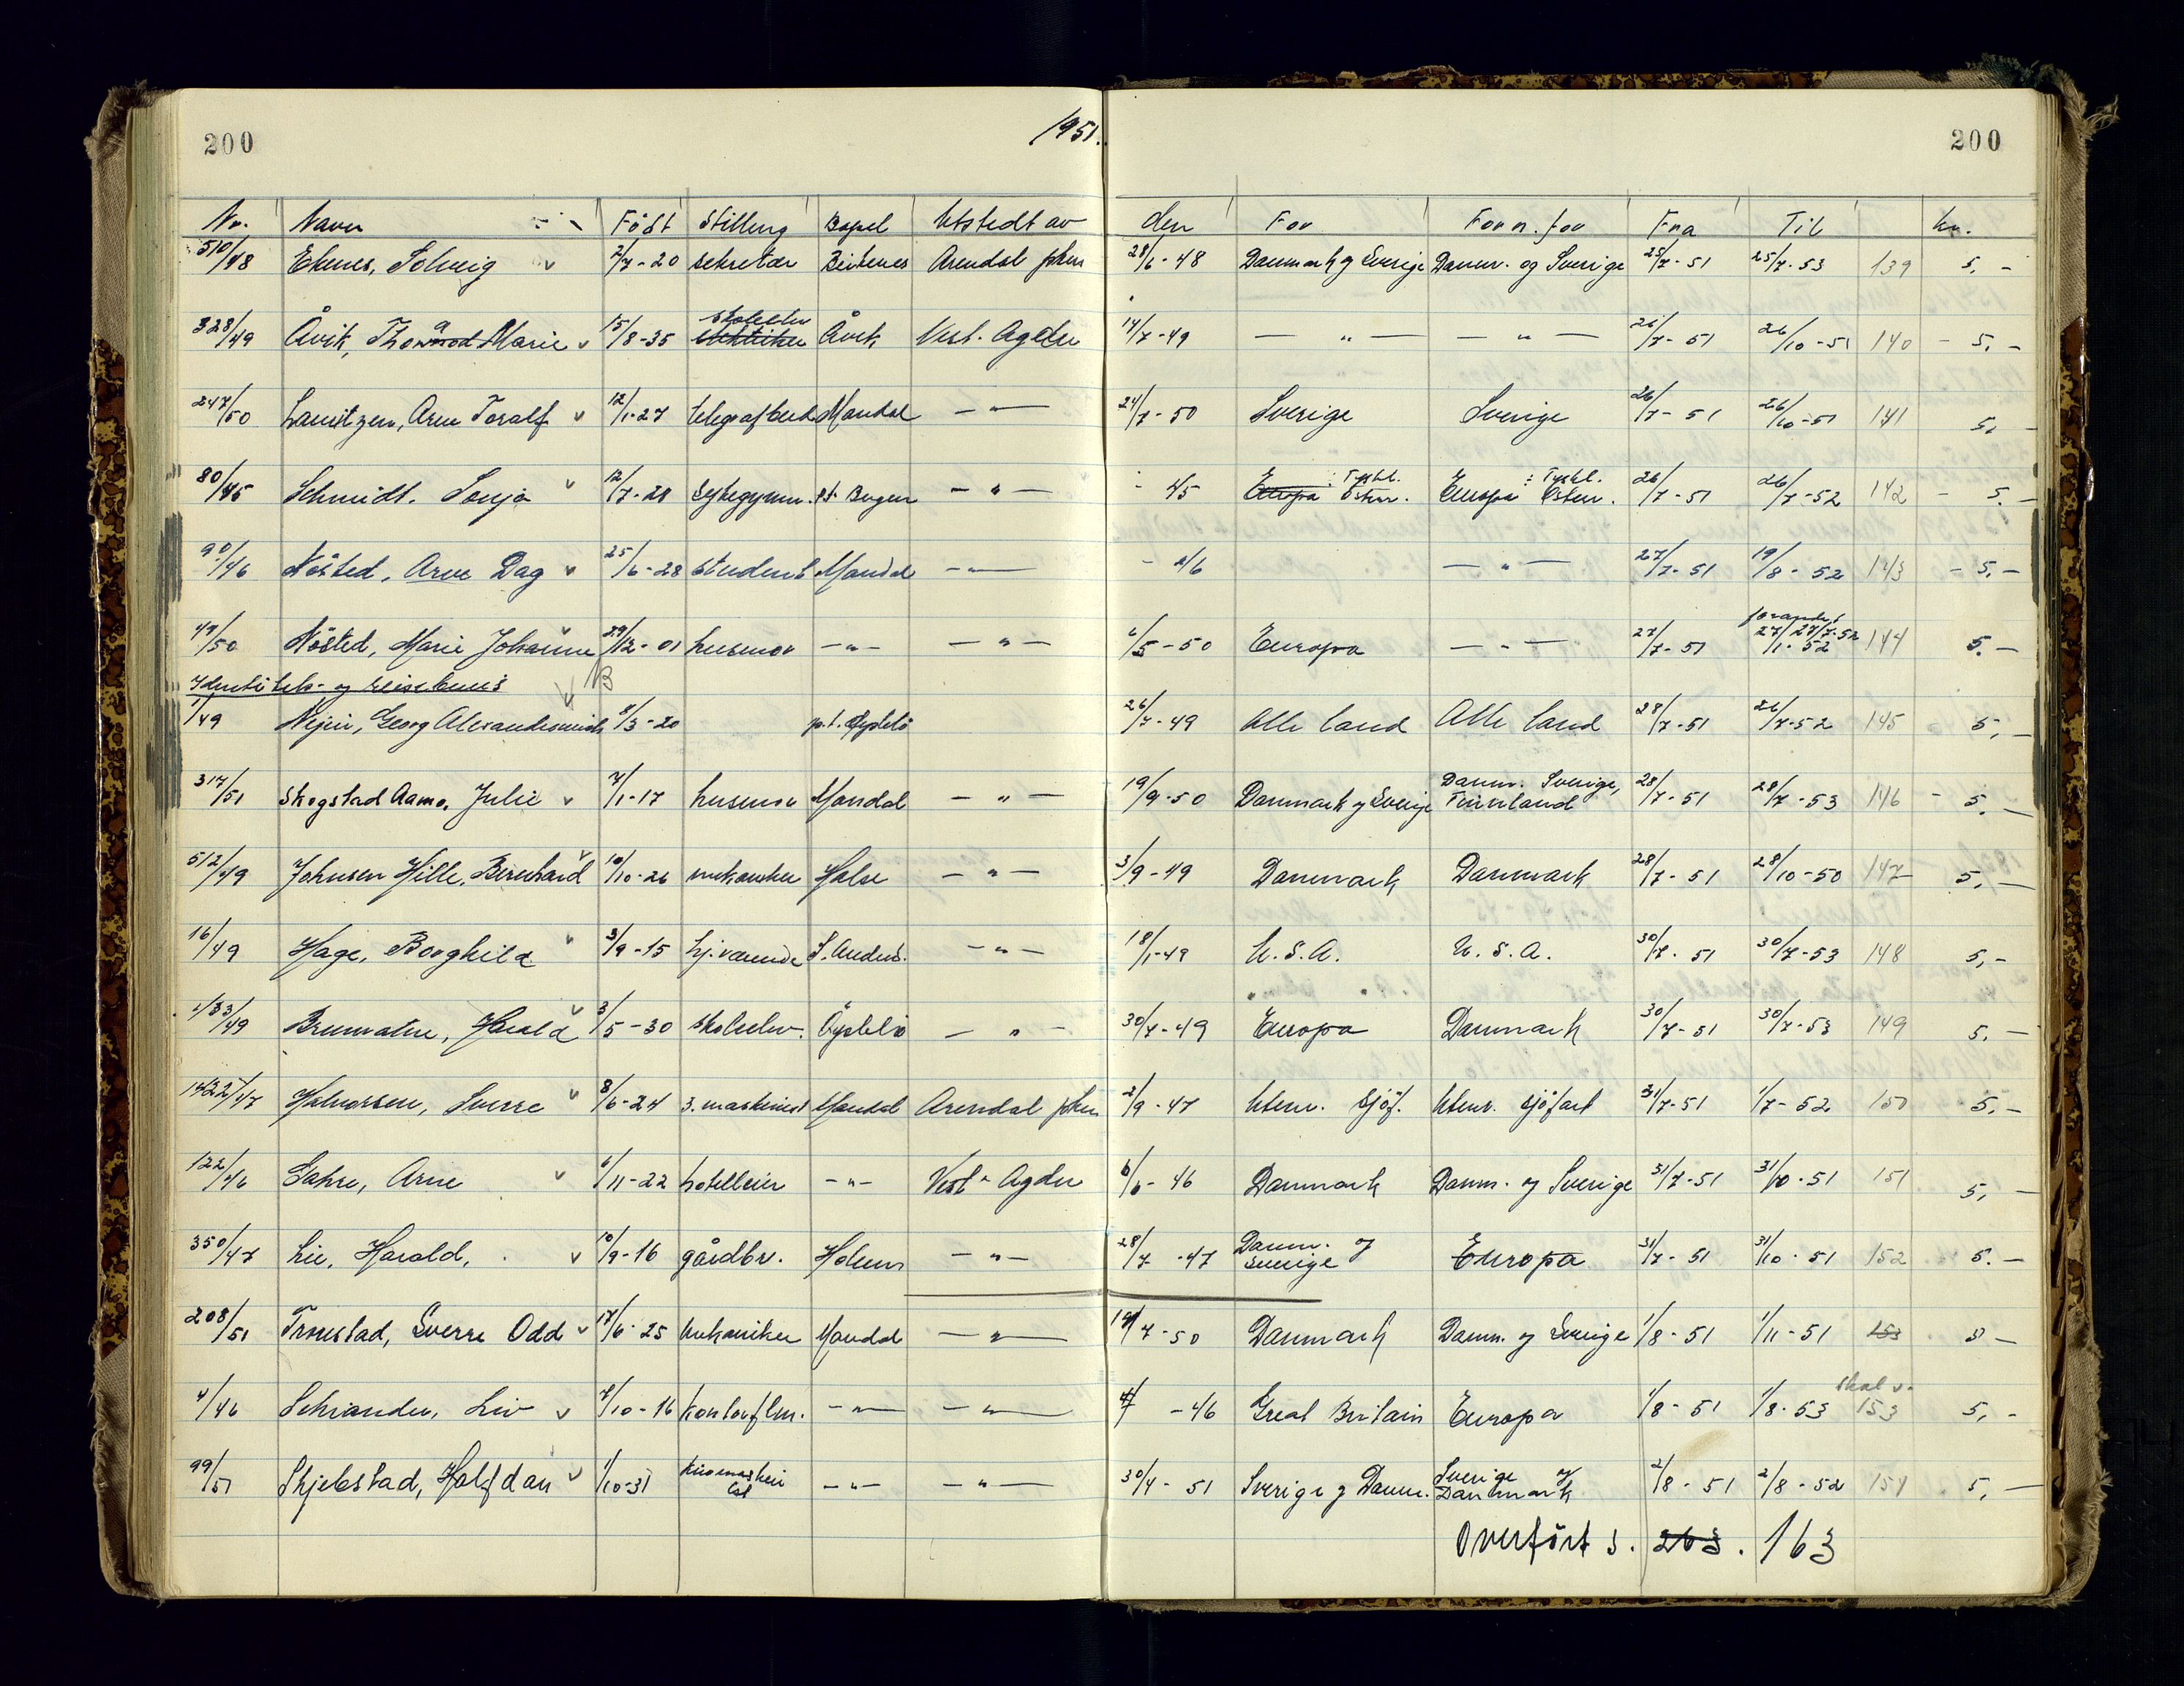 200 1951. 200
Nr. Navn Født Stilling Bopel Utstedt av den For Forn. for Fra Til kr.
510/48 Eknes, Solveig v 2/7-20 sekretær Arendal pkm 28/6-48 Danmark og Sverige Danm. og Sverige 25/7-51 25/7-53 139 5,-
328/49 Åvik, Marie v 15/8-35 Åvik Vest-Agder 14/7-49 — " — — " — 26/7-51 26/10-51 140 - 5.-
247/50 Lauritzen, Arne Toralf v 12/1-27 Mandal — " — 24/7-50 Sverige Sverige 26/7-51 26/10-51 141 5,-
80/45 Schmidt. Sonja v 12/7-28 sykegymn. pt. Bergen — " — - 45 Europa : Tyskl. Østerr. Europa : Tyskl. Østerr. 26/7-51 26/7-52 142 - 5.-
90/46 Nøsted, Arne Dag v 25/6-28 student Mandal — " — - 46 — " — 27/7-51 19/8-52 143 - 5.-
49/50 Nøsted, Marie Johanne v 29/12-01 husmor — " — — " — 6/5-50 Europa — " — 27/7-51 27/1-52 27/7-52 144 5.-
Identitets- og reisebevis NB
1/49 Georg Alexandrowich v 8/3-20 p.t. Øyslebø 26/7-49 Alle land Alle land 28/7-51 26/7-52 145 5,-
317/51 Skogstad Aamo, Julie v 7/1-17 husmor Mandal — " — 19/9-50 Danmark og Sverige Danm. Sverige, Finnland 28/7-51 28/7-53 146 - 5.-
512/49 Johnsen Hille, Bernhard v 10/10-26 mekaniker Halse — " — 3/9-49 Danmark Danmark 28/7-51 28/10-50 147 5,-
16/49 Hage, Borghild v 3/9-15 hj.værende S. Audn. — " — 18/1-49 U.S.A. U.S.A. 30/7-51 30/7-53 148 5,-
433/49 Harald v 3/5-30 skoleelev. Øyslebø — " — 30/7-49 Europa Danmark 30/7-51 30/7-53 149 5,-
1422/47 Halvorsen, Sverre v 8/6-24 3. maskinist Mandal Arendal pkm 2/9-47 Utenr. sjøf. Utenr. sjøfart 31/7-51 1/7-52 150 5.-
122/46 Arne v 6/11-22 hotelleier — " — Vest-Agder 6/6-46 Danmark Danm. og Sverige 31/7-51 31/10-51 151 5,-
350/47 Lie, Harald, v 10/9-16 gårdbr. Holum — " — 28/7-47 Danm. og Sverige Europa 31/7-51 31/10-51 152 5.-
208/51 Tronstad, Sverre Odd v 17/6-25 mekaniker Mandal — " — 19/7-50 Danmark Danm. og Sverige 1/8-51 1/11-51 153 5-
4/46 Schrander, Liv v 7/10-16 kontorflm. — " — — " — - 46 Great Britain Europa 1/8-51 1/8-53 skal v. 153 5,-
99/51 Skjebstad, Halfdan v 1/10-31 kinomaskinist — " — — " — 30/4-51 Sverige og Danm. Sverige og Danmark 2/8-51 2/8-52 154 5,-
Overført s. 263. 163